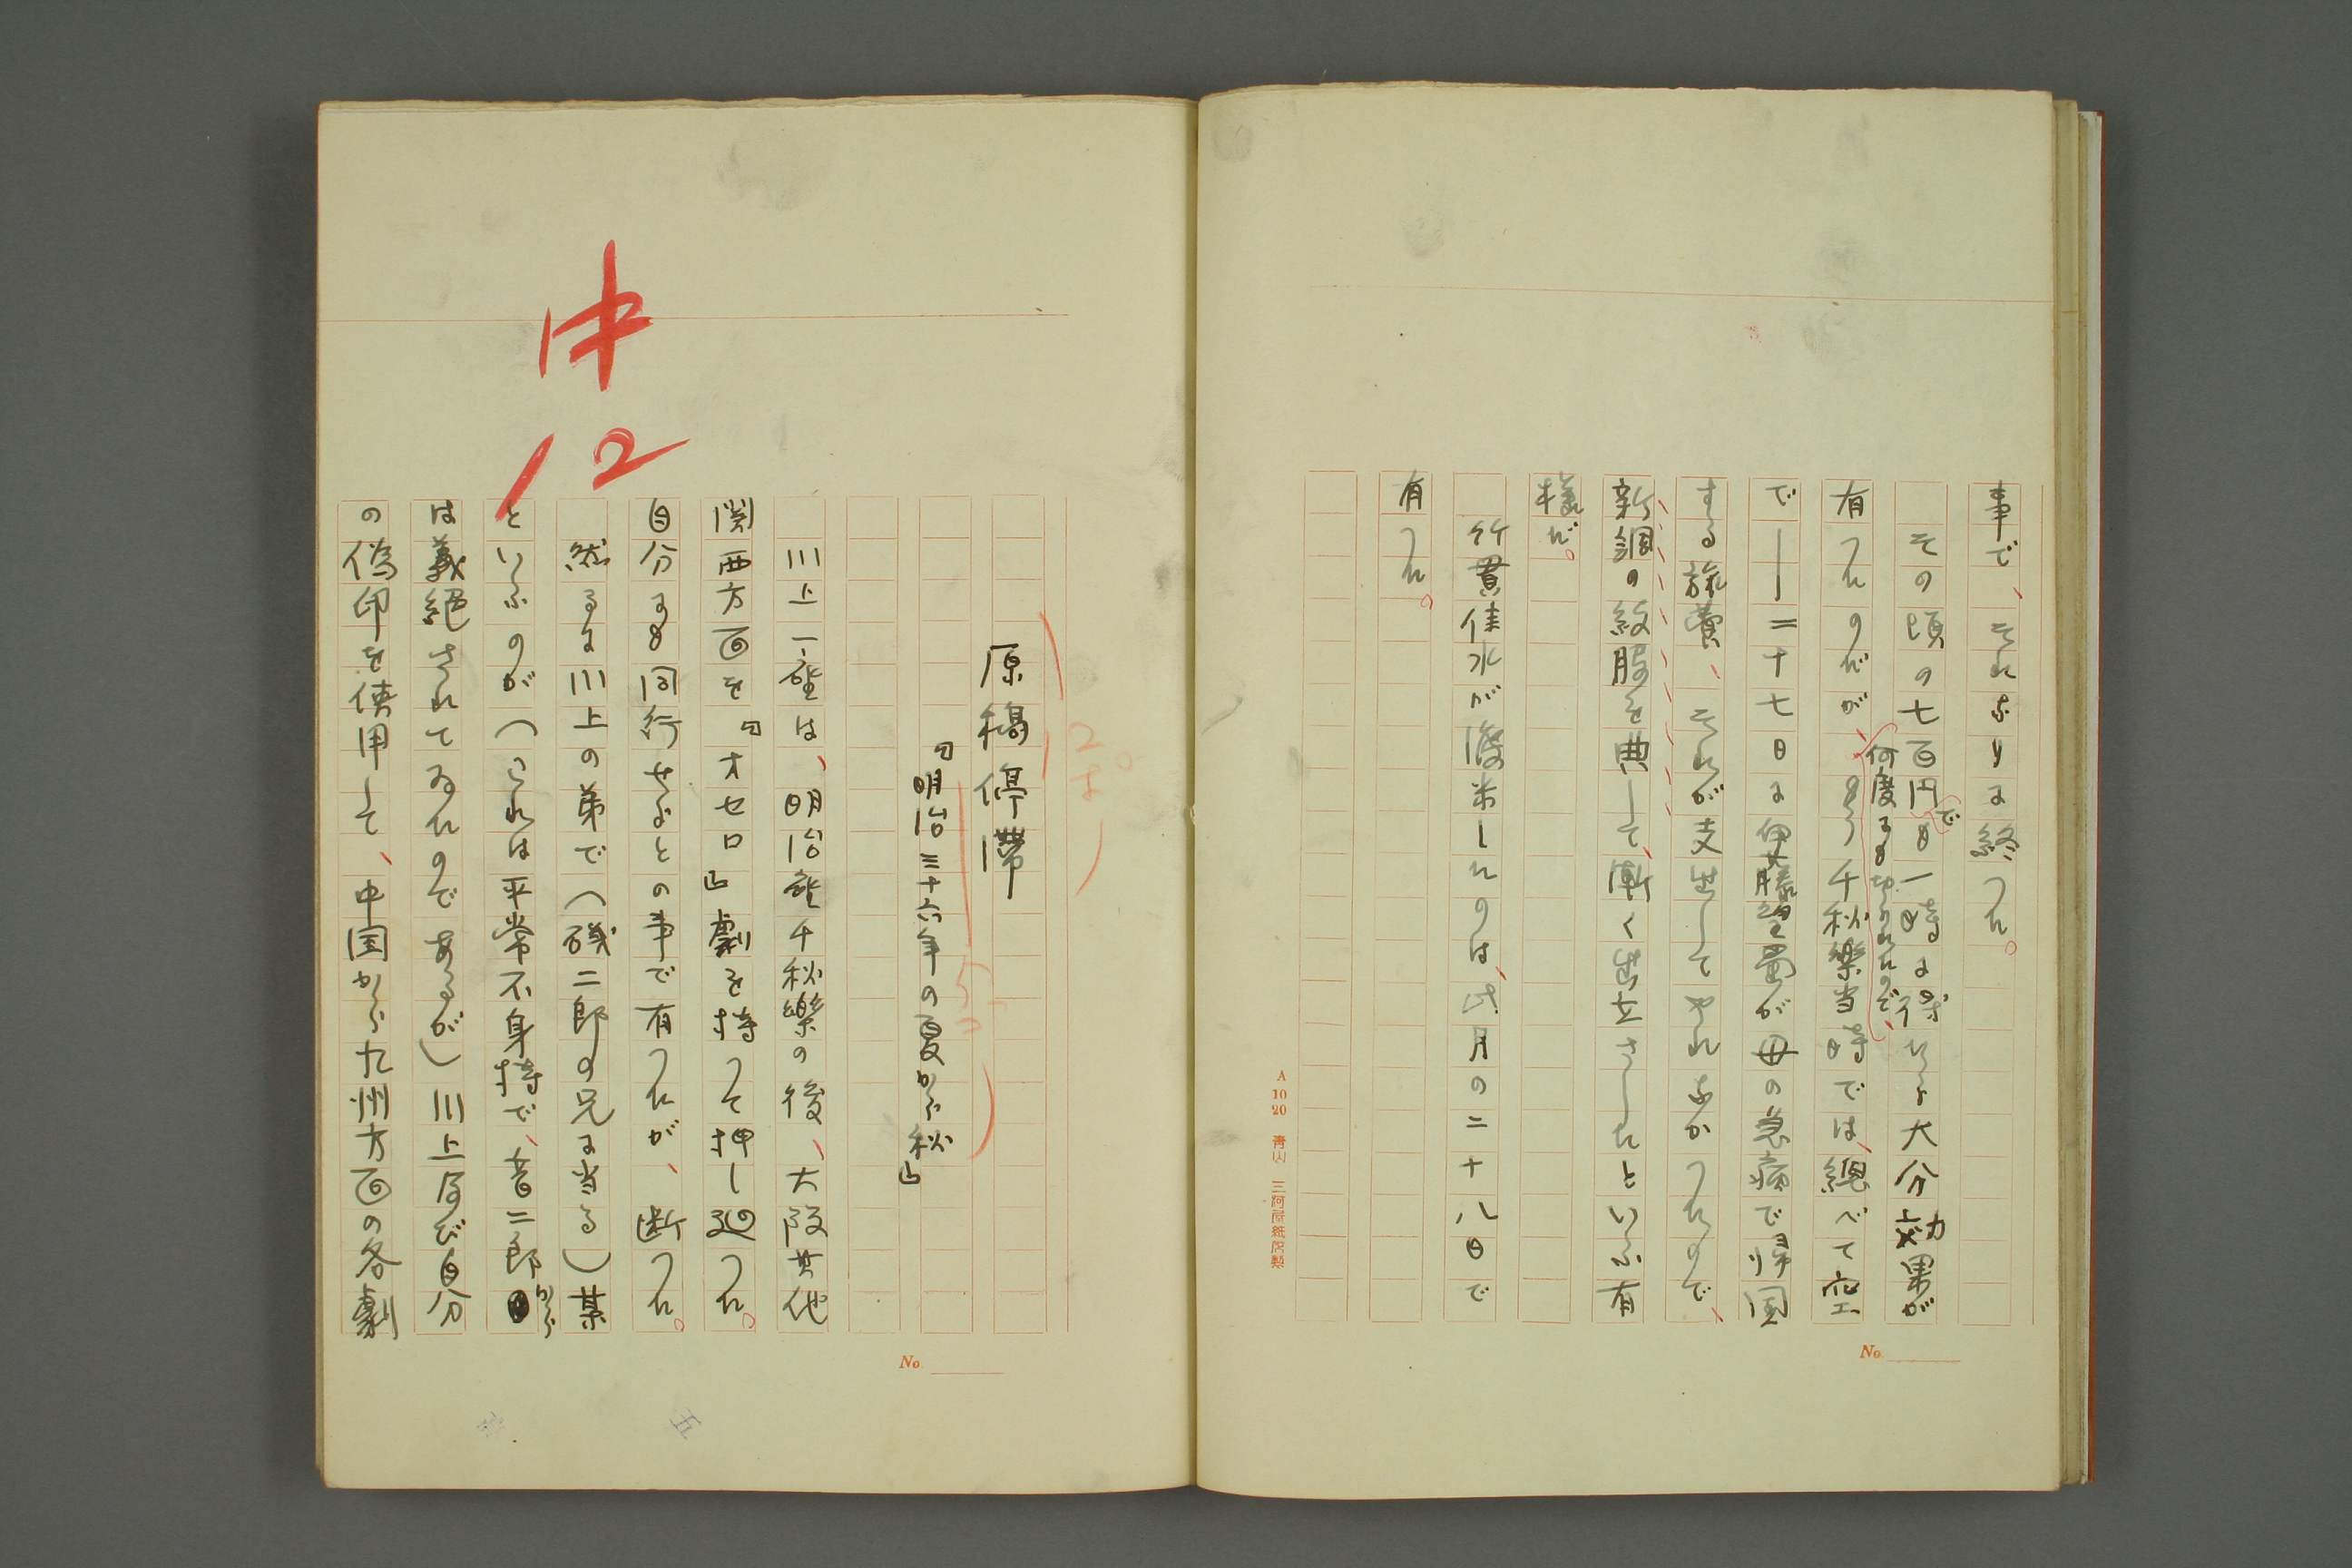 事で、それなりに終つた。
その頃の七百円で
も一時に得たら大分効果が
有つたのだが、
何度にも切られたので、
もう千秋楽当時では、総べて空
で――二十七日に伊藤望蜀が母の急病で帰国
する旅費、それが支出してやれなかつたので、
新調の紋服を典して、漸く出立さしたといふ有
様だ。
竹貫佳水が渡米したのは、此月の二十八日で
有つた。
No.
A 10 20 青山
12ポ
原稿停滞
5
『明治三十六年の夏から秋』
中
12
川上一座は、明治座千秋楽の後、大阪其他
関西方面を『オセロ』劇を持つて押し廻つた。
自分にも同行せよとの事で有つたが、断つた。
然るに川上の弟で(磯二郎の兄に当る)某
といふのが(これは平常不身持で、音二郎から
は義絶されてゐたのであるが)川上及び自分
の偽印を使用して、中国から九州方面の各劇
No.
五